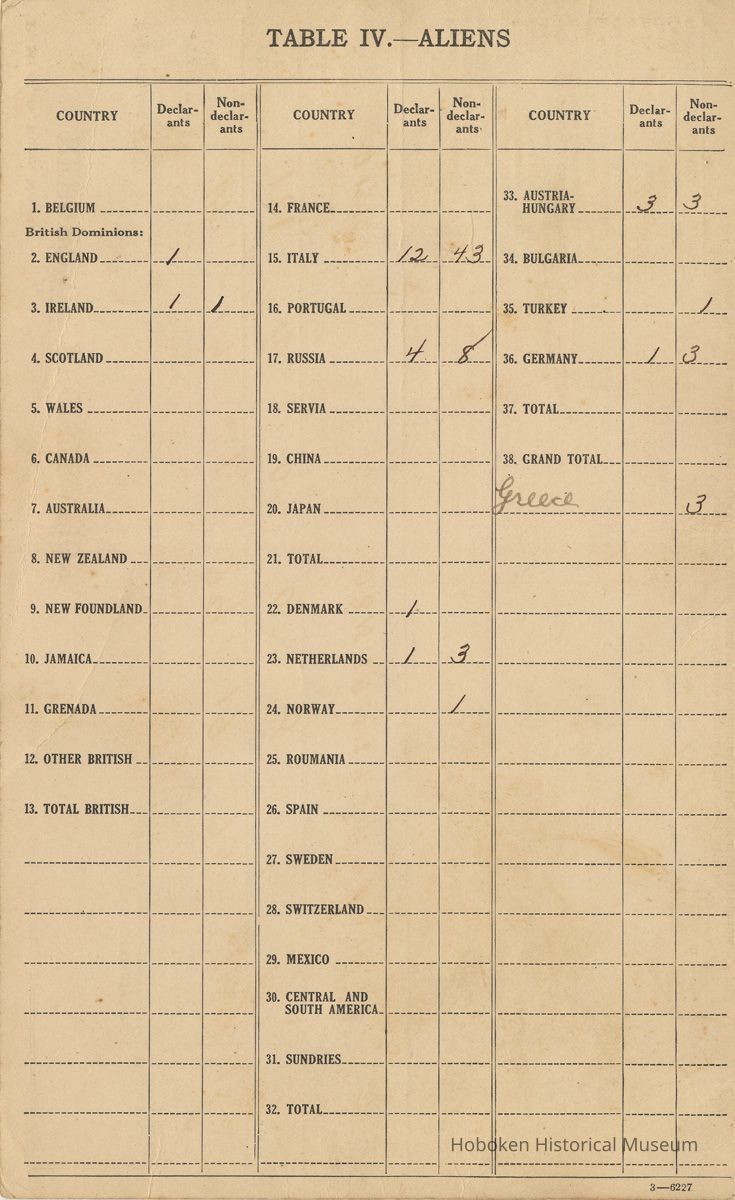 TABLE IV.—ALIENS
COUNTRY Declar-ants Non-declar-ants
1. BELGIUM
British Dominions:
2. ENGLAND 1
3. IRELAND 1 1
4. SCOTLAND
5. WALES
6. CANADA
7. AUSTRALIA
8. NEW ZEALAND
9. NEW FOUNDLAND
10. JAMAICA
11. GRENADA
12. OTHER BRITISH
13. TOTAL BRITISH
COUNTRY Declar-ants Non-declar-ants
14. FRANCE
15. ITALY 12 43
16. PORTUGAL
17. RUSSIA 4 8
18. SERVIA
19. CHINA
20. JAPAN
21. TOTAL
22. DENMARK 1
23. NETHERLANDS 1 3
24. NORWAY 1
25. ROUMANIA
26. SPAIN
27. SWEDEN
28. SWITZERLAND
29. MEXICO
30. CENTRAL AND
SOUTH AMERICA
31. SUNDRIES
32. TOTAL
COUNTRY Declar-ants Non-declar-ants
33. AUSTRIA-
HUNGARY 3 3
34. BULGARIA
35. TURKEY 1
36. GERMANY 1 3
37. TOTAL
38. GRAND TOTAL
Greece 3
Hoboken Historical Museum
3—6227